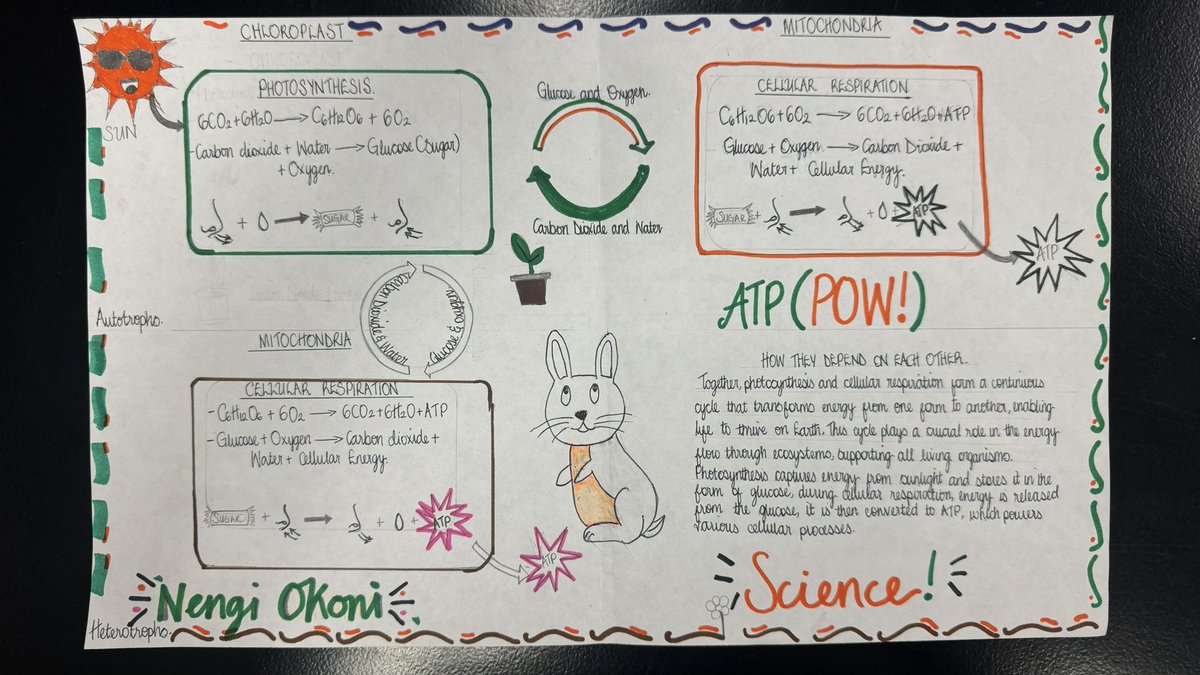 CHLOROPLAST
MITOCHONDRIA
SUN
PHOTOSYNTHESIS.
6CO2+6H2O → C6H12O6 + 6O2
-Carbon dioxide + Water → Glucose (Sugar)
+ Oxygen.
+ → SUGAR +
Glucose and Oxygen.
Carbon Dioxide and Water
CELLULAR RESPIRATION
C6H12O6+6O2 → 6CO2+6H2O+ATP
Glucose + Oxygen → Carbon Dioxide +
Water + Cellular Energy.
SUGAR + → + + ATP
ATP
Autotrophs.
Carbon Dioxide & Water
Glucose & Oxygen.
MITOCHONDRIA
CELLULAR RESPIRATION
- C6H12O6 + 6O2 → 6CO2+6H2O+ATP
- Glucose + Oxygen → Carbon dioxide +
Water + Cellular Energy.
SUGAR + → + + ATP
ATP
ATP (POW!)
HOW THEY DEPEND ON EACH OTHER.
Together, photosynthesis and cellular respiration form a continuous
cycle that transforms energy from one form to another, enabling
life to thrive on Earth. This cycle plays a crucial role in the energy
flow through ecosystems, supporting all living organisms.
Photosynthesis captures energy from sunlight and stores it in the
form of glucose, during cellular respiration, energy is released
from the glucose, it is then converted to ATP, which powers
various cellular processes.
Nengi Okoni
Science!
Heterotrophs.